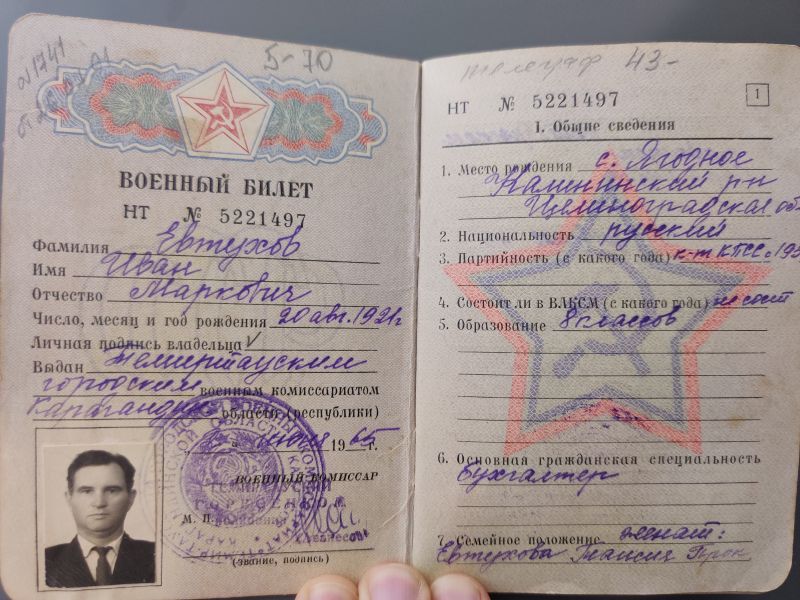 5-70
ВОЕННЫЙ БИЛЕТ
НТ № 5221497
Фамилия Евтухов
Имя Иван
Отчество Маркович
Число, месяц и год рождения 20 авг. 1921г
Личная подпись владельца
Выдан Темиртауским
городским военным комиссариатом
Караганди области (республики)
1965 г.
ВОЕННЫЙ КОМИССАР
М. П.
(звание, подпись)
телеграф 43-
НТ № 5221497
1
I. Общие сведения
1. Место рождения с. Ягодное
Калининский рн
Целиноградская об
2. Национальность русский
3. Партийность (с какого года) к-т КПСС с 195
4. Состоит ли в ВЛКСМ (с какого года) не сост
5. Образование 8 классов
6. Основная гражданская специальность
бухгалтер
7. Семейное положение женат:
Евтухова Таисия